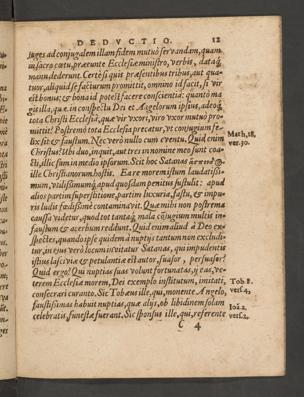 DEDVCTIO. 12
juges ad conjugalem illam fidem mutuò servandam, quam
in sacro cœtu, præeunte Ecclesiæ ministro, verbis, dataq́;
manu dederunt. Certè si quis præsentibus tribus, aut qua-
tuor, aliquid se facturum promittit, omnino id facit, si vir
est bonus; & bona id potest facere conscientiâ: quantò ma-
gis illa, quæ in conspectu Dei et Angelorum ipsius, adeoq́;
tota Christi Ecclesia, quæ vir vxori, viro vxor mutuò pro-
mittit? Postremò tota Ecclesia precatur, vt conjugium fe-
lix sit & faustum. Nec verò nullo cum eventu. Quid enim
Christus? Vbi duo, inquit, aut tres in nomine meo sunt coa-
cti, illic sum in medio ipsorum. Scit hoc Satanas
ille Christianorum hostis. Ea re morem istum laudatissi-
mum, vtilissimumq́; apud quosdam penitus sustulit: apud
alios partim superstitione, partim luxuria, fastu, & impu-
ris ludis fœdißimè contaminavit. Quæ mihi non postrema
caussa videtur, quod tot tantaq́; mala conjugium multis in-
faustum & acerbum reddunt. Quid enim aliud à Deo ex-
spectes, quando ipse quidem à nuptijs tantum non excludi-
tur, in ejus verò locum invitatur Satanas, qui impudentis
istius lasciviæ & petulantiæ est autor, suasor, persuasor?
Quid ergo? Qui nuptias suas volunt fortunatas, ij eas, ve-
terem Ecclesiæ morem, Dei exemplo institutum, imitati,
consecrari curanto. Sic Tobæus ille, qui, monente Angelo,
faustissimas habuit nuptias, quæ alijs, ob libidinem solam
celebratis, funestæ fuerant. Sic sponsus ille, qui, referente
C 4
Math. 18.
ver. 30.
Tob. 8.
vers. 4.
Joā. 2.
vers. 2.